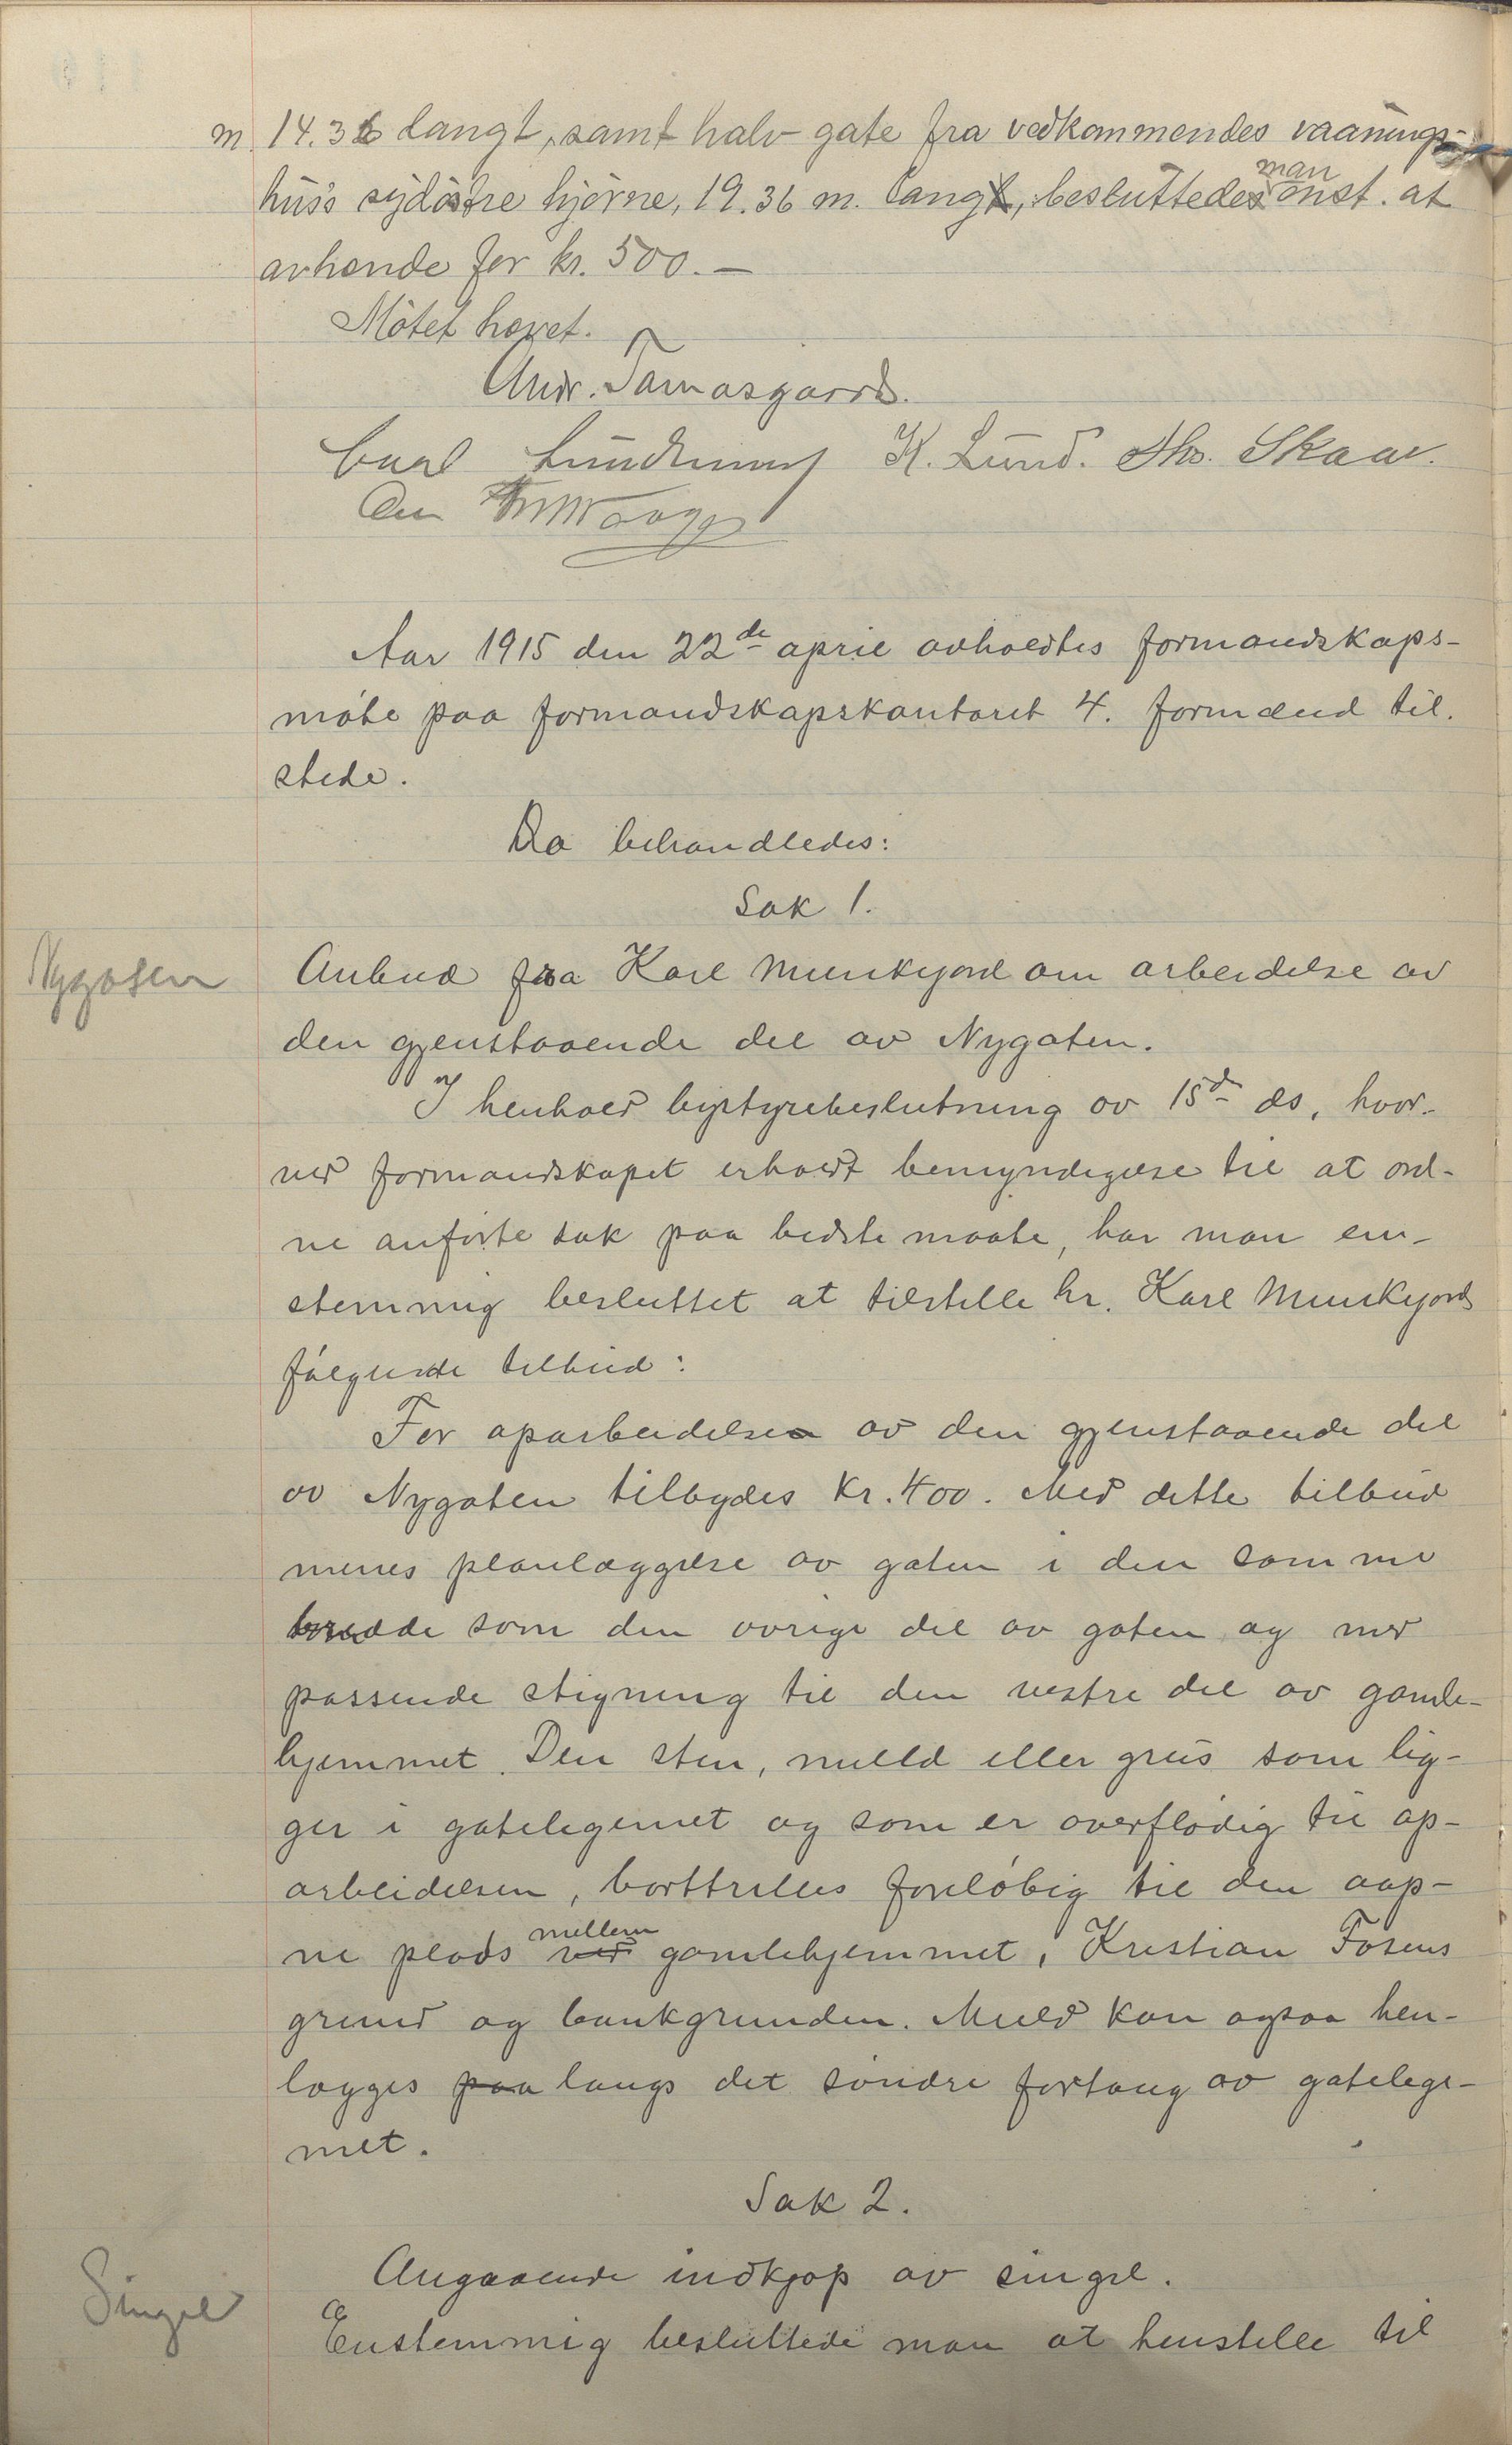 m. 14.36 langt, samt halv gate fra vedkommendes vaanings-
hus's sydöstre hjörne, 19.36 m. langt, besluttedes man enst. at
avhænde for kr. 500.—
Mötet hævet.
Andr. Tamasgaard.
Carl K. Lund. Ths. Skaar.
Aar 1915 den 22de april avholdtes formandskaps-
möte paa formandskapskontoret 4. formænd til.
stede.
Da behandledes:
Sak 1.
Nygaten
Anbud fra Karl Munkejord om arbeidelse av
den gjenstaaende del av Nygaten.
I henhold bystyrebeslutning av 15de ds, hvor-
ved formandskapet erholdt bemyndigelse til at ord-
ne anförte sak paa bedste maate, har man en-
stemmig besluttet at tilstille hr. Karl Munkejord
fölgende tilbud:
For oparbeidelsen av den gjenstaaende del
av Nygaten tilbydes kr. 400. Med dette tilbud
menes planlæggelse av gaten i den samme
bredde som den övrige del av gaten og med
passende stigning til den vestre del av gamle-
hjemmet. Den sten, muld eller grus som lig-
ger i gatelegemet og som er overflödig til op-
arbeidelsen, borttrilles foreløbig til den aap-
ne plads ved mellem gamlehjemmet, Kristian Fosens
grund og bankgrunden. Muld kan ogsaa hen-
lægges paa langs det söndre fortaug av gatelege-
met.
Sak 2.
Singel
Angaaende indkjøp av singel.
Enstemmig besluttede man at henstille til